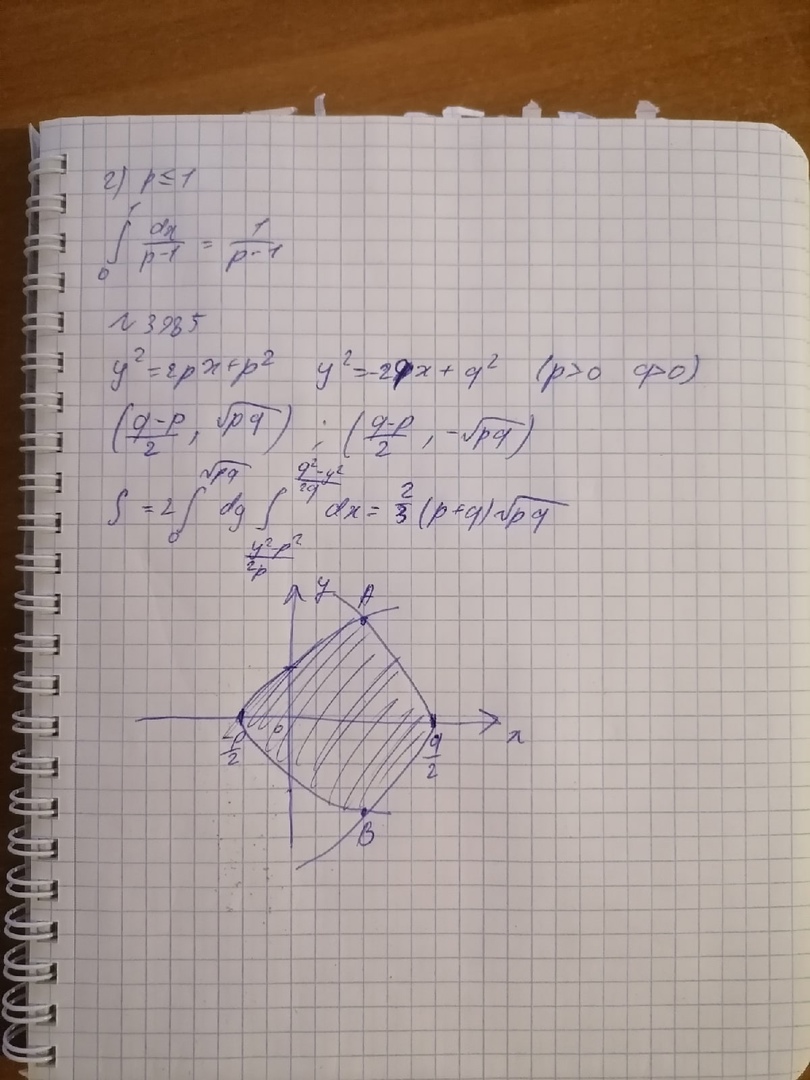 г) p ≤ 1
∫₀¹ dx/(p-1) = 1/(p-1)
№ 3985
y² = 2px + p² y² = -2qx + q² (p>0 q>0)
((q-p)/2, √pq) ; ((q-p)/2, -√pq)
S = 2 ∫₀^√pq dy ∫_{(y²-p²)/2p}^{(q²-y²)/2q} dx = 2/3 (p+q) √pq
y A
-p/2 0 q/2 x
B